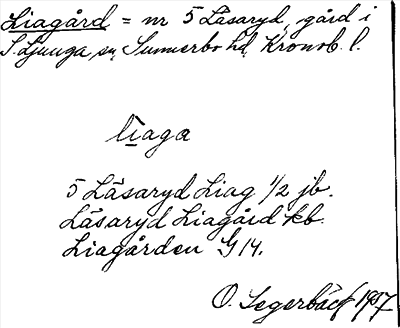 Liagård = nr 5 Läsaryd, gård i
S. Ljunga sn, Sunnerbo hd, Kronob. l.
lìaga
5 Läsaryd Liag 1/2 jb.
Läsaryd Liagård kb.
Liagården G 14.
O. Segerbäck 1937